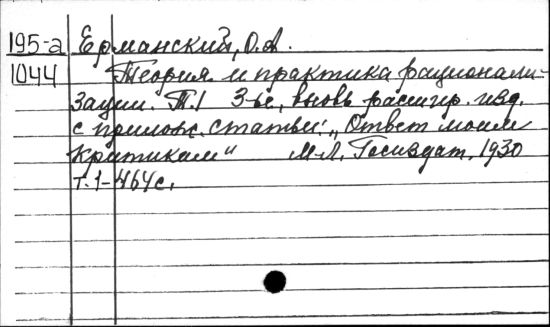 195-а Ерманский, О.А.
1044 Теория и практика рационали-
зации. Т.1 3-ье, вновь расшир. изд.
с прилож. статьи: „Ответ моим
критикам“ М-Л, Госиздат, 1930
т.1-464с.